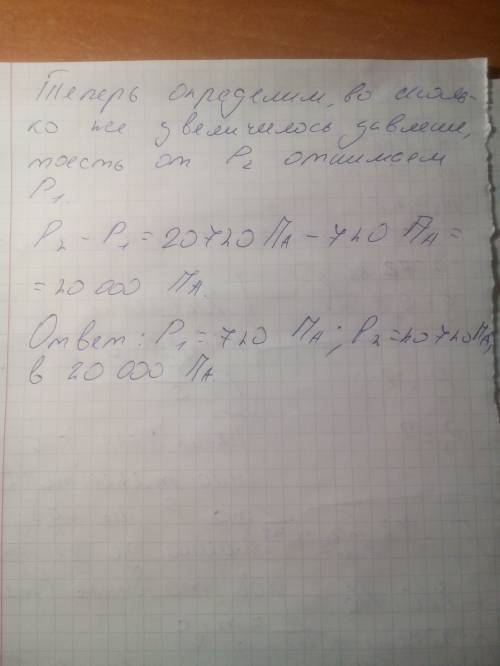 Теперь определим, во сколь-
ко же увеличилось давление,
тоесть от P₂ отнимаем
P₁.
P₂ - P₁ = 20720 Па - 720 Па =
= 20 000 Па.
Ответ: P₁ = 720 Па; P₂ = 20720 Па,
в 20 000 Па.